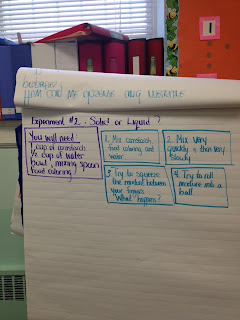 HOW CAN WE
Experiment #2. Solid or Liquid?
You will need:
1 cup of cornstarch
1/2 cup of water
bowl, mixing spoon
food coloring
1. Mix cornstarch,
food coloring and
water
2. Mix very
quickly & than very
slowly
3. Try to squeeze
the mixture between
your fingers
What happens?
4. Try to roll
mixture into a
ball